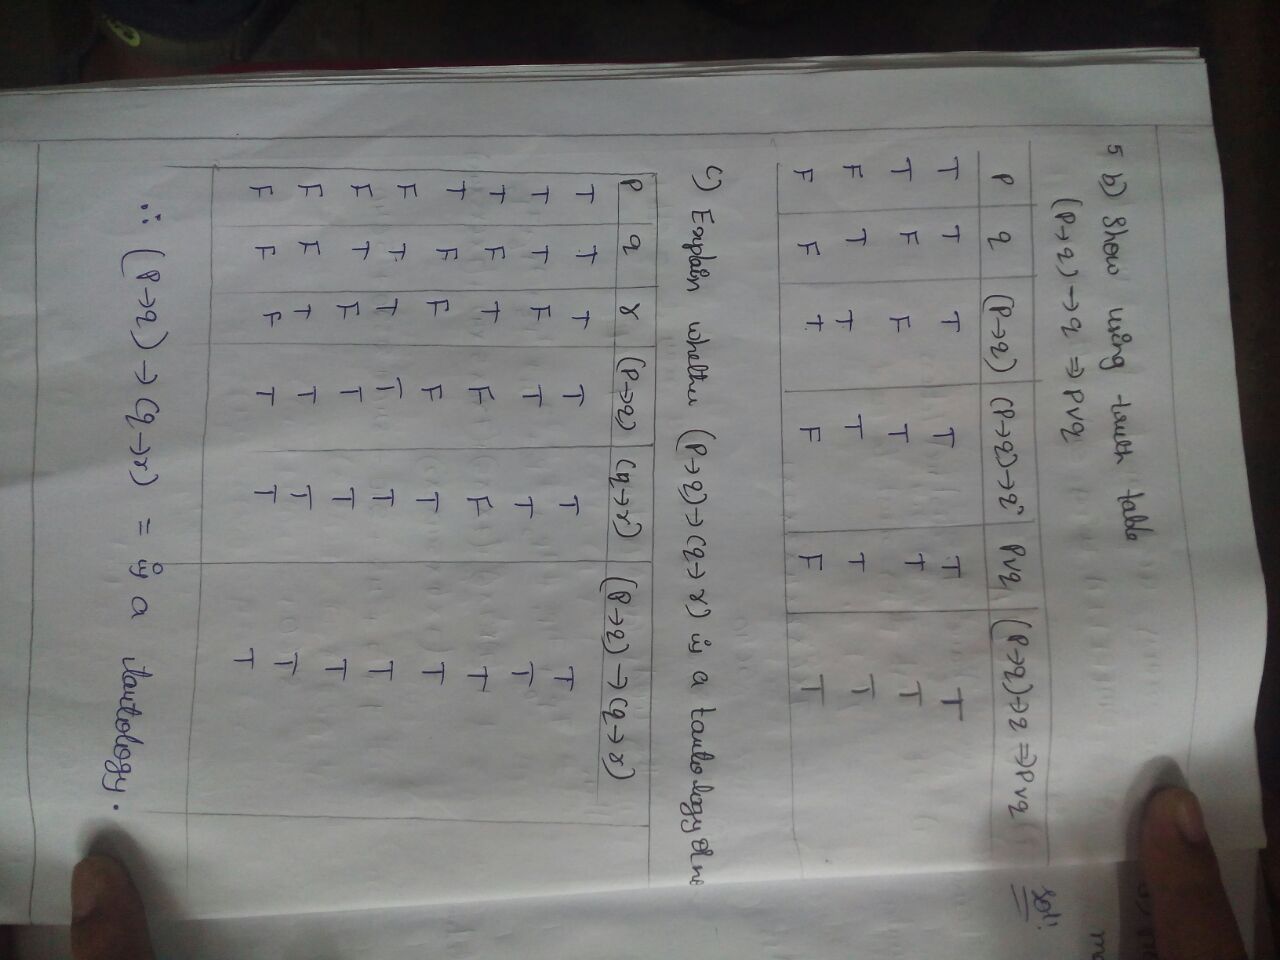 5 b) Show using truth table
(P→q)→q ⇒ P∨q
P q (P→q) (P→q)→q P∨q (P→q)→q ⇒ P∨q
T T T T T T
T F F T T T
F T T T T T
F F T F F T
c) Explain whether (P→q)→(q→r) is a tautology or no
P q r (P→q) (q→r) (P→q)→(q→r)
T T T T T T
T T F T T T
T F T F F T
T F F F T T
F T T T T T
F T F T T T
F F T T T T
F F F T T T
∴ (P→q)→(q→r) = is a tautology.
Sol: